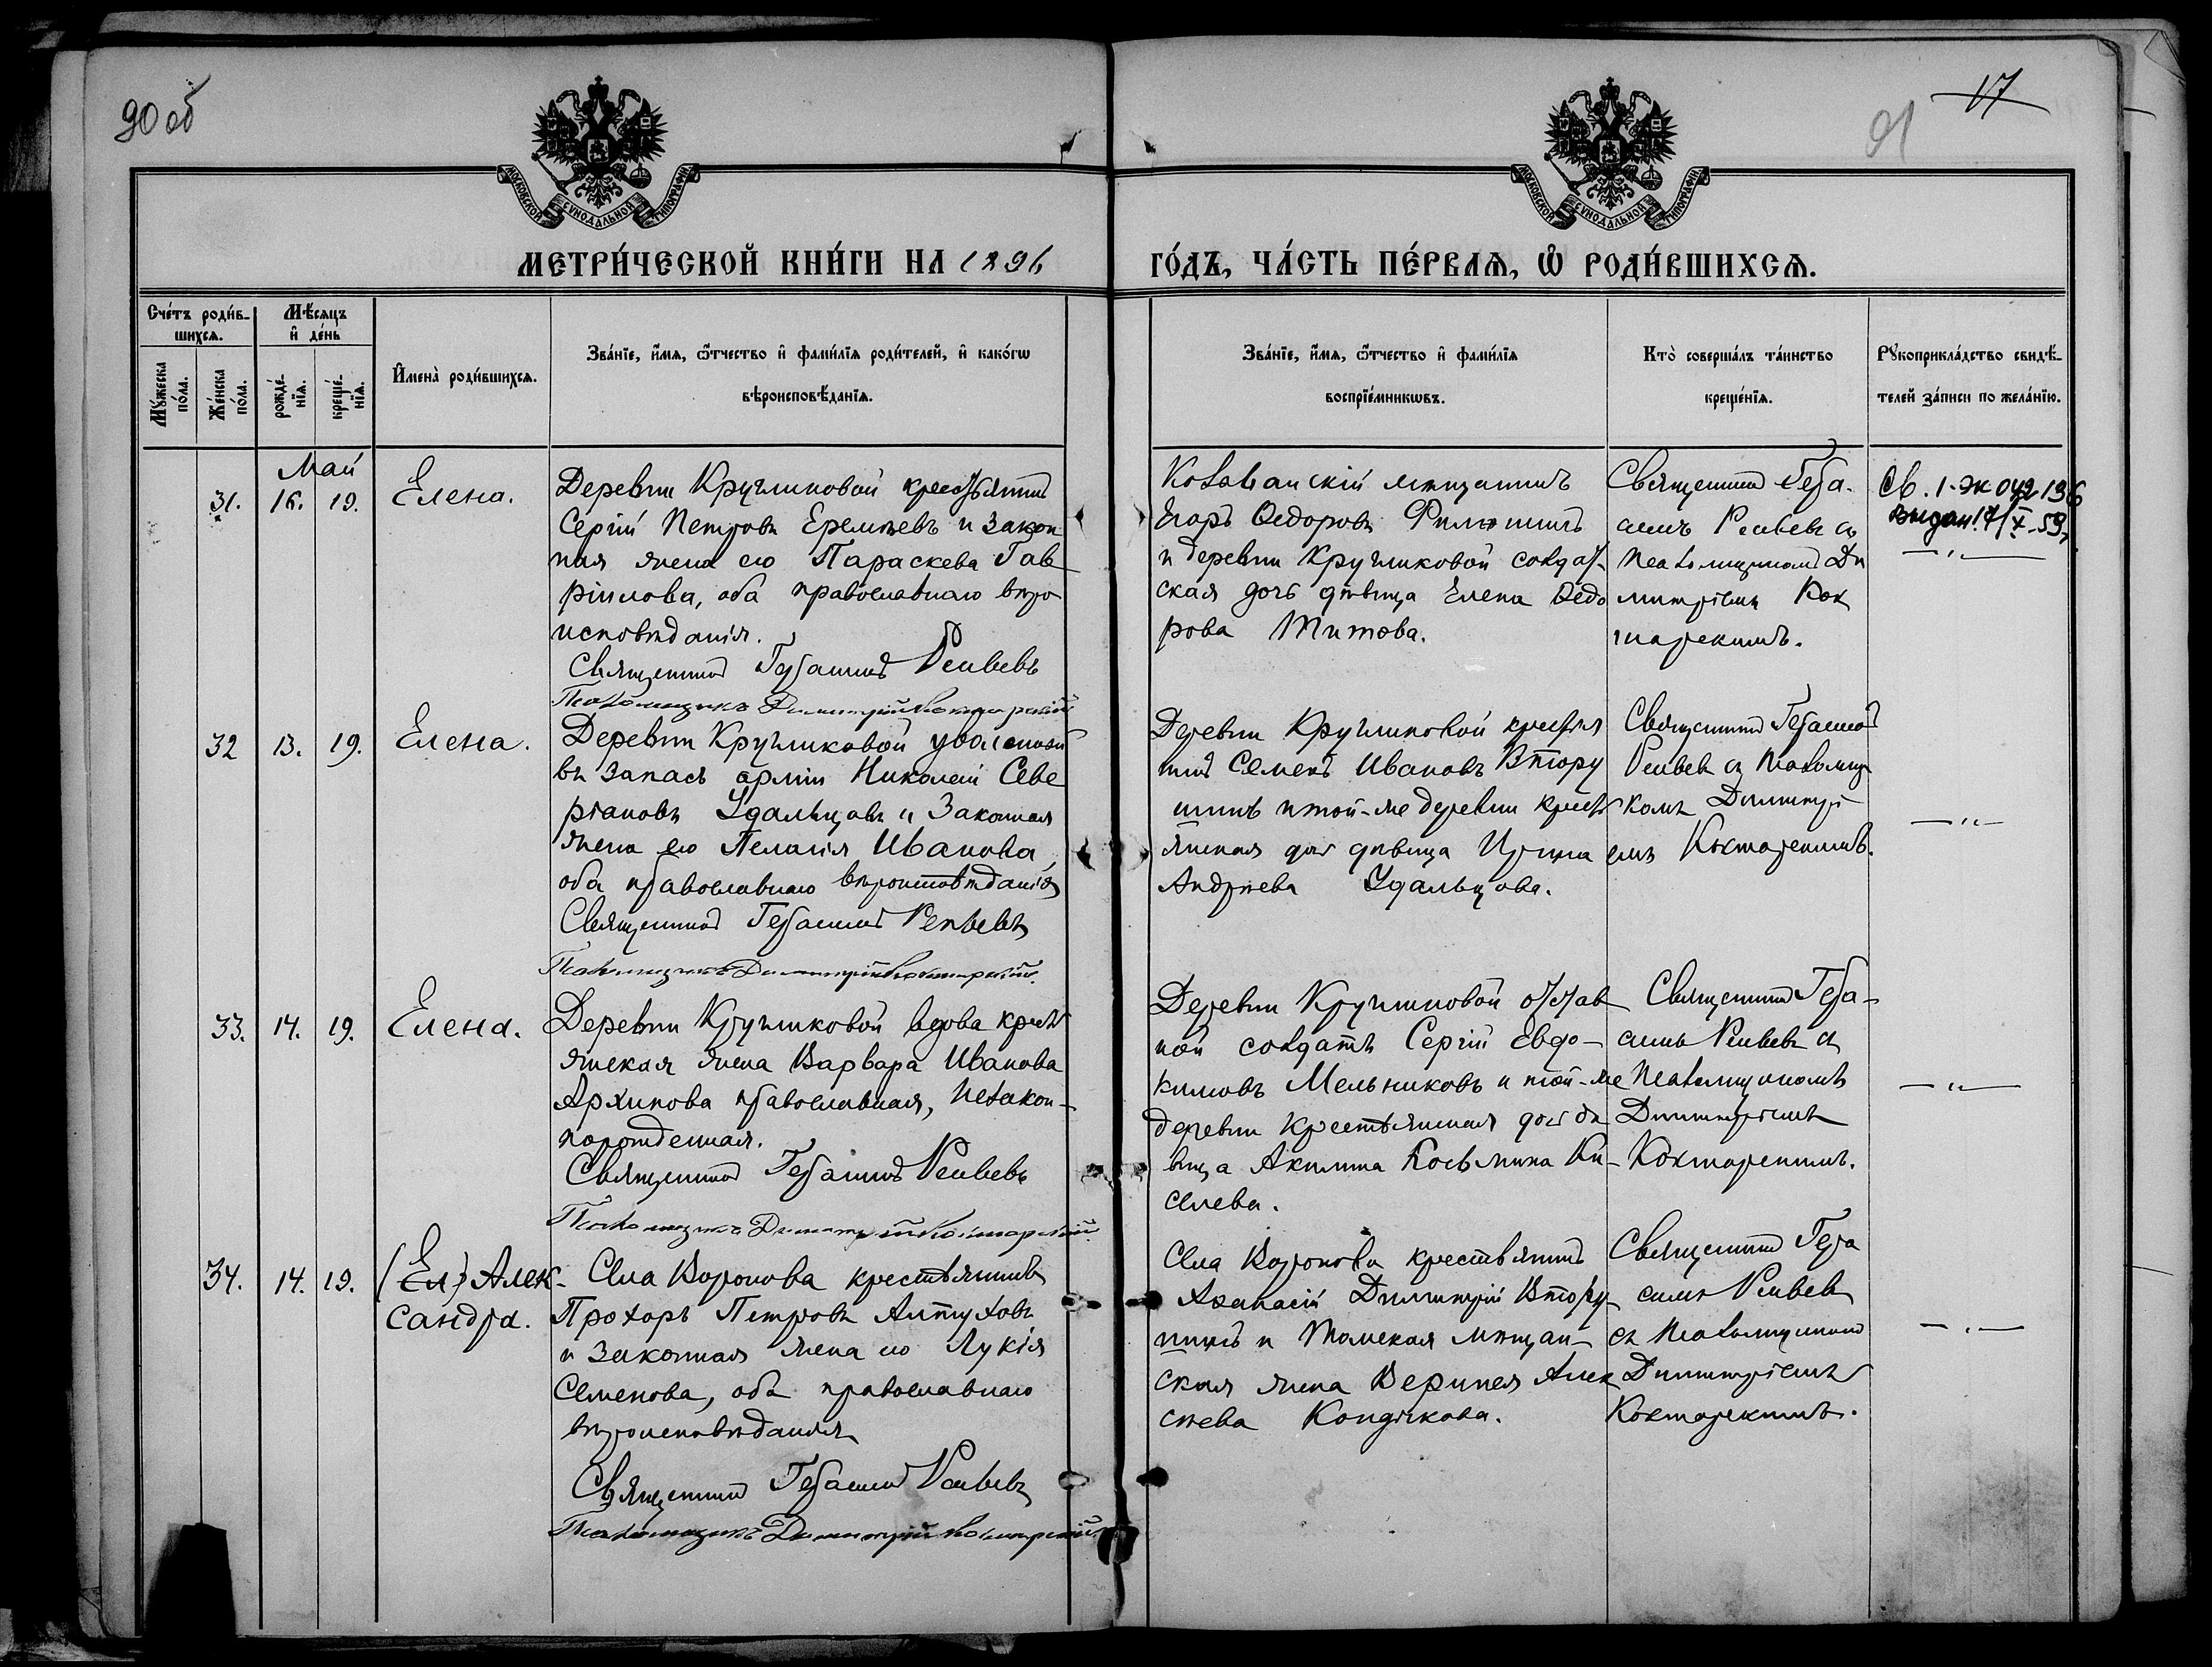 90 об
17
91
МОСКОВСКОЙ СУНОДАЛЬНОЙ ТИПОГРАФІИ
МОСКОВСКОЙ СУНОДАЛЬНОЙ ТИПОГРАФІИ
МЕТРИ́ЧЕСКОЙ КНИ́ГИ НА 1896
ГО́ДЪ, ЧА́СТЬ ПЕ́РВАѦ, Ѡ РОДИ́ВШИХСѦ.
Сче́тъ роди́в-
шихсѧ.
Мꙋ́жеска по́ла.
Же́нска по́ла.
Мѣ́сѧцъ
и҆ де́нь
рожде́-
нїѧ.
креще́-
нїѧ.
И҆мена̀ роди́вшихсѧ.
Зва́нїе, и҆́мѧ, ѻ҆́тчество и҆ фами́лїѧ роди́телей, и҆ како́гѡ
вѣроисповѣ́данїѧ.
Зва́нїе, и҆́мѧ, ѻ҆́тчество и҆ фами́лїѧ
воспрїе́мникѡвъ.
Кто̀ соверша́лъ та́инство
креще́нїѧ.
Рꙋкоприкла́дство свидѣ́-
телей за́писи по жела́нїю.
Май
31. 16. 19. Елена.
Деревни Кругликовой крестьянинъ
Сергій Петровъ Еремѣевъ и закон
ная жена его Параскева Гав
ріилова, оба православнаго вѣро
исповѣданія.
Священникъ Герасимъ
Псаломщикъ Димитрій
Колыванскій мѣщанинъ
Егоръ Ѳедоровъ Филюшинъ
и деревни Кругликовой солдат-
ская дочь дѣвица Елена Ѳедо
рова Титова.
Священникъ Гера-
симъ съ
Псаломщикомъ Ди
митріемъ
Св. 1-ЭК 042196
выдан 17/X-59
32 13. 19. Елена.
Деревни Кругликовой уволенной
въ запасъ арміи Николай Севе
ріановъ Удальцовъ и законная
жена его Пелагія Иванова,
оба православнаго вѣроисповѣданія
Священникъ Герасимъ
Псаломщикъ Димитрій
Деревни Кругликовой крестья
нинъ Семенъ Ивановъ Втору
шинъ и той-же деревни кресть
янская дочь дѣвица Ирина
Андреева Удальцова.
Священникъ Герасимъ
съ Псаломщи
комъ Димитрі
емъ
33. 14. 19. Елена.
Деревни Кругликовой вдова кресть
янская жена Варвара Иванова
Архипова православная, незакон-
норожденная.
Священникъ Герасимъ
Псаломщикъ Димитрій
Деревни Кругликовой отстав
ной солдатъ Сергій Евдо-
кимовъ Мельниковъ и той-же
деревни крестьянская дочь дѣ
вица Акилина Косьмина Ки-
селева.
Священникъ Гера-
симъ съ
Псаломщикомъ
Димитріемъ
34. 14. 19. (Ел) Алек-
сандра.
Села Воронова крестьянинъ
Прохоръ Петровъ Алтуховъ
и законная жена его Лукія
Семенова, оба православнаго
вѣроисповѣданія
Священникъ Герасимъ
Псаломщикъ Димитрій
Села Воронова крестьянинъ
Аѳанасій Димитрій Втору
шинъ и Томская мѣщан-
ская жена Веринея Алек
сѣева Кондакова.
Священникъ Гера
симъ
съ Псаломщикомъ
Димитріемъ